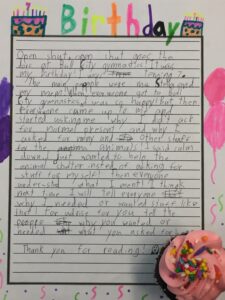 Birthday
Open shut, open shut goes the
door at Bull City gymnastics. It was
my birthday! I was turning 7.
The main people were me
my mom. When everyone got to Bull
City gymnastics I was so happy but then
Everyone came up to me and
started asking me why I did't ask
for normal presents and why I
asked for money and other stuff
for the animals. I said calm
down I just wanted to help the
animal shelter instead of asking for
stuff for my self! Then everyone
understood what I meant. I think
next time I will tell everyone
why I needed or wanted stuff like
that for advise for you tell the
people why you wanted or
needed what you asked for.
Thank you for reading!